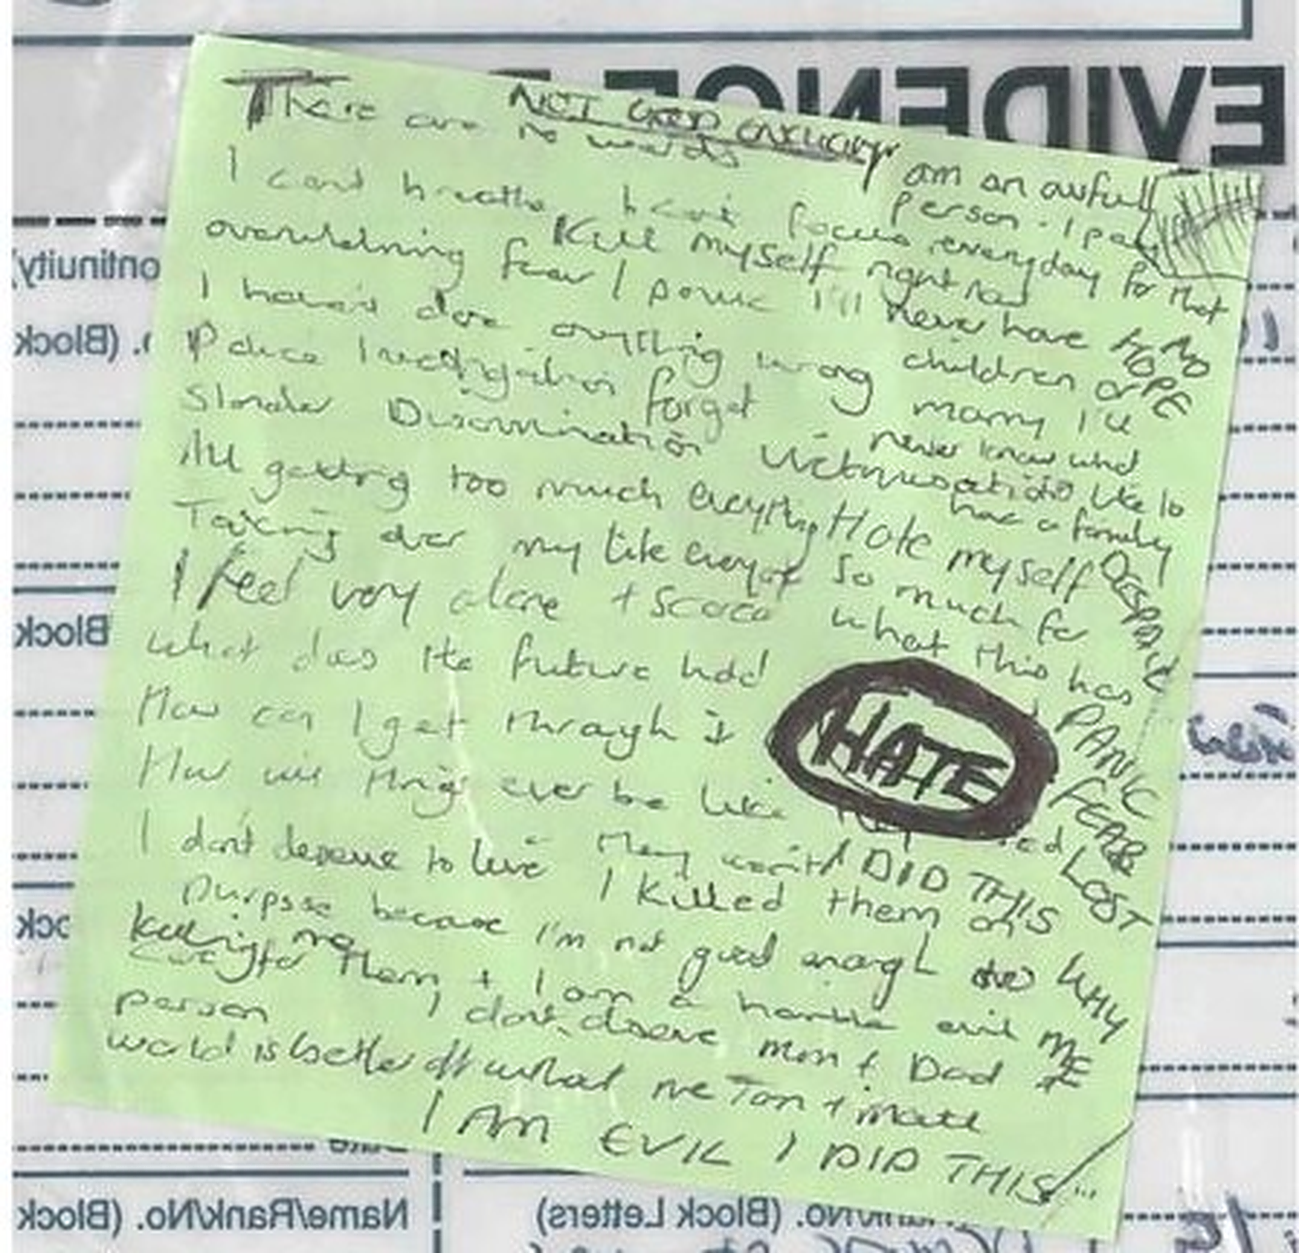 EVIDENCE
NOT GOOD ENOUGH
There are no words
I am an awful
person. I pay
everyday for that
I cant breathe I cant focus
Kill myself right now
overwhelming fear / panic
I'll never have
NO
HOPE
children or
marry I'll
never know what
like to
have a family
I haven't done anything wrong
Police Investigation forget
Slander Discrimination Victimisation
All getting too much everything
Hate myself
so much for
what this has
DESPAIR
Taking over my life everyday
I feel very alone + scared
What does the future hold
HATE
PANIC
FEAR
LOST
How can I get through it
How will things ever be like
I don't deserve to live
They won't
I DID THIS
WHY
ME
I killed them on
purpose because I'm not good enough to
care for them + I am a horrible evil
killing me
person
I don't deserve Mum + Dad
world is better off without me Tom + Matt
I AM EVIL I DID THIS
Name/Rank/No. (Block
(Block Letters)